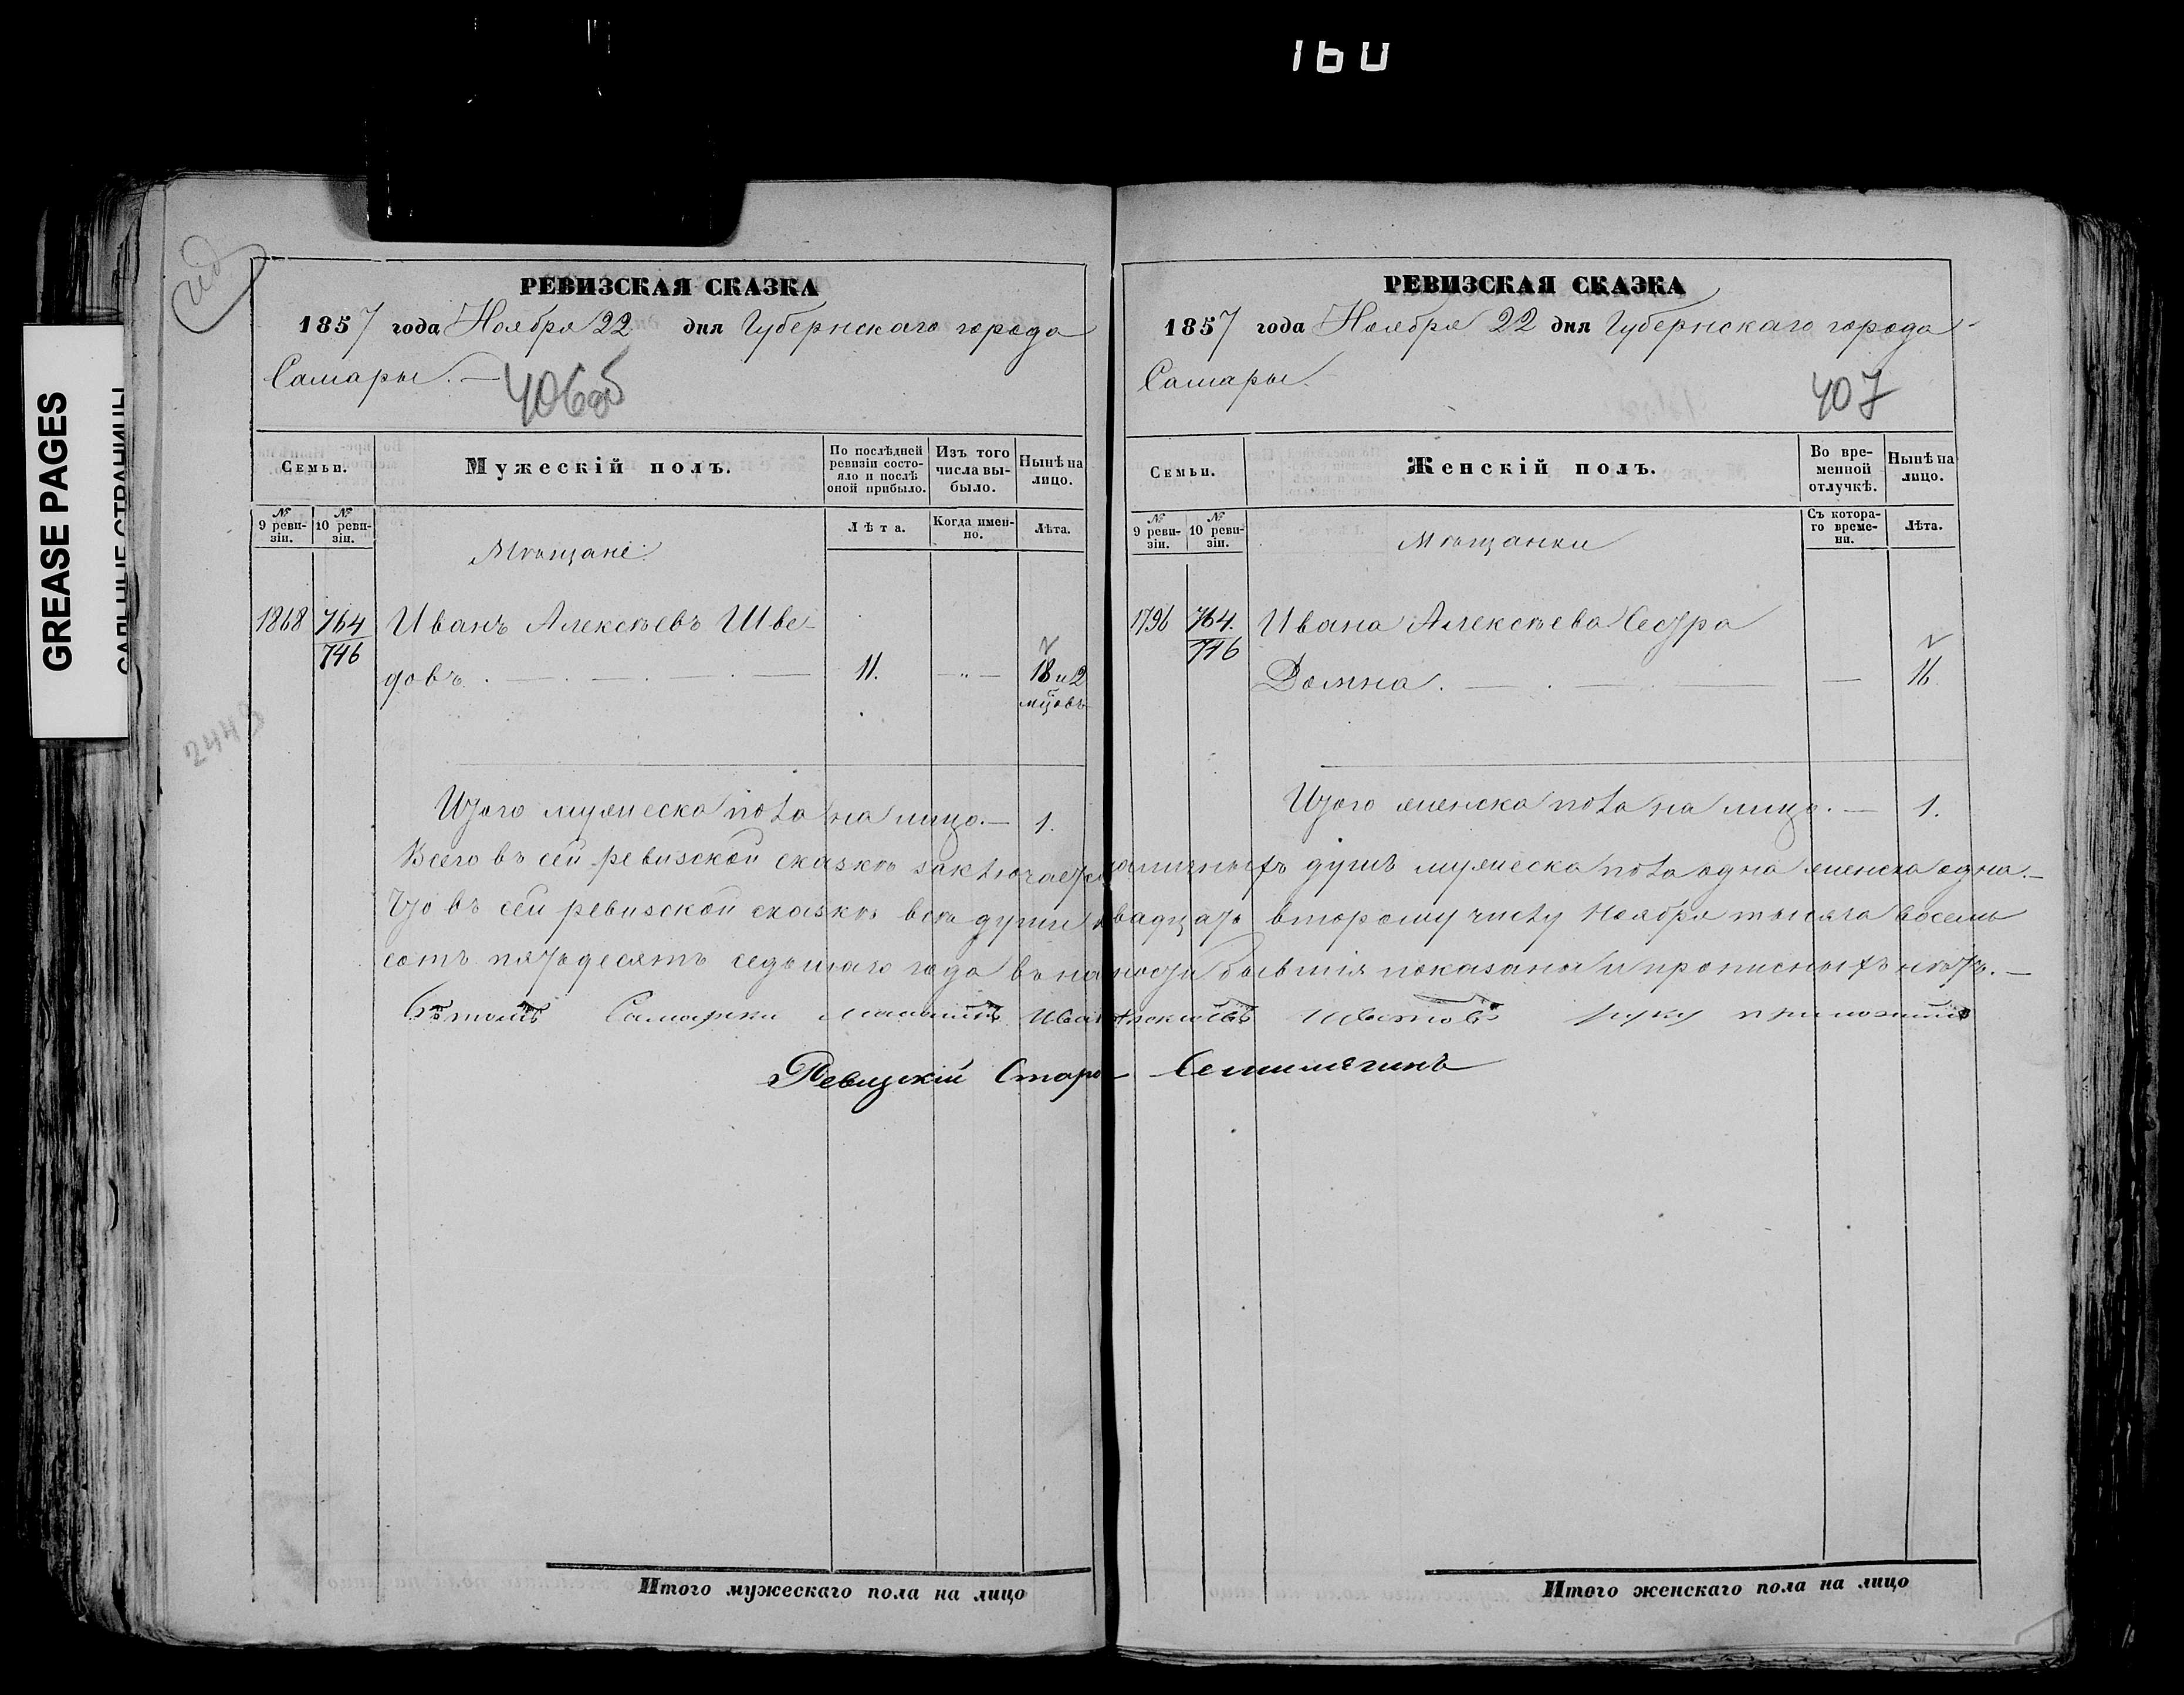 160
GREASE PAGES
2443
РЕВИЗСКАЯ СКАЗКА
1857 года Ноября 22 дня Губернскаго города
Самары. —
406об
Семьи.
Мужескій полъ.
По послѣдней ревизіи состояло и послѣ оной прибыло.
Изъ того числа выбыло.
Нынѣ на лицо.
№ 9 ревизіи.
№ 10 ревизіи.
Мѣщане:
Лѣта.
Когда именно.
Лѣта.
1868 764 Иванъ Алексѣевъ Шве-
746
довъ. — 11. — „ — 18 и 2
мцовъ
Итого мужеска пола на лицо. — 1.
РЕВИЗСКАЯ СКАЗКА
1857 года Ноября 22 дня Губернскаго города
Самары.
407
Семьи.
Женскій полъ.
Во временной отлучкѣ.
Нынѣ на лицо.
№ 9 ревизіи.
№ 10 ревизіи.
Мѣщанки
Съ котораго времени.
Лѣта.
1796 764. Ивана Алексѣева Сестра
746
Домна. — — 16
Итого женска пола на лицо. — 1.
Всего въ сей ревизской сказкѣ заключается наличныхъ душъ мужеска пола одна женска одна. —
Что въ сей ревизской сказкѣ всѣ души двадцать второму числу Ноября тысяча восемь
сотъ пятьдесятъ седьмаго года въ наличности бывшія показаны и прописныхъ нѣтъ. —
Въ томъ руку приложилъ
Ревизскій Старо-
Итого мужескаго пола на лицо
Итого женскаго пола на лицо